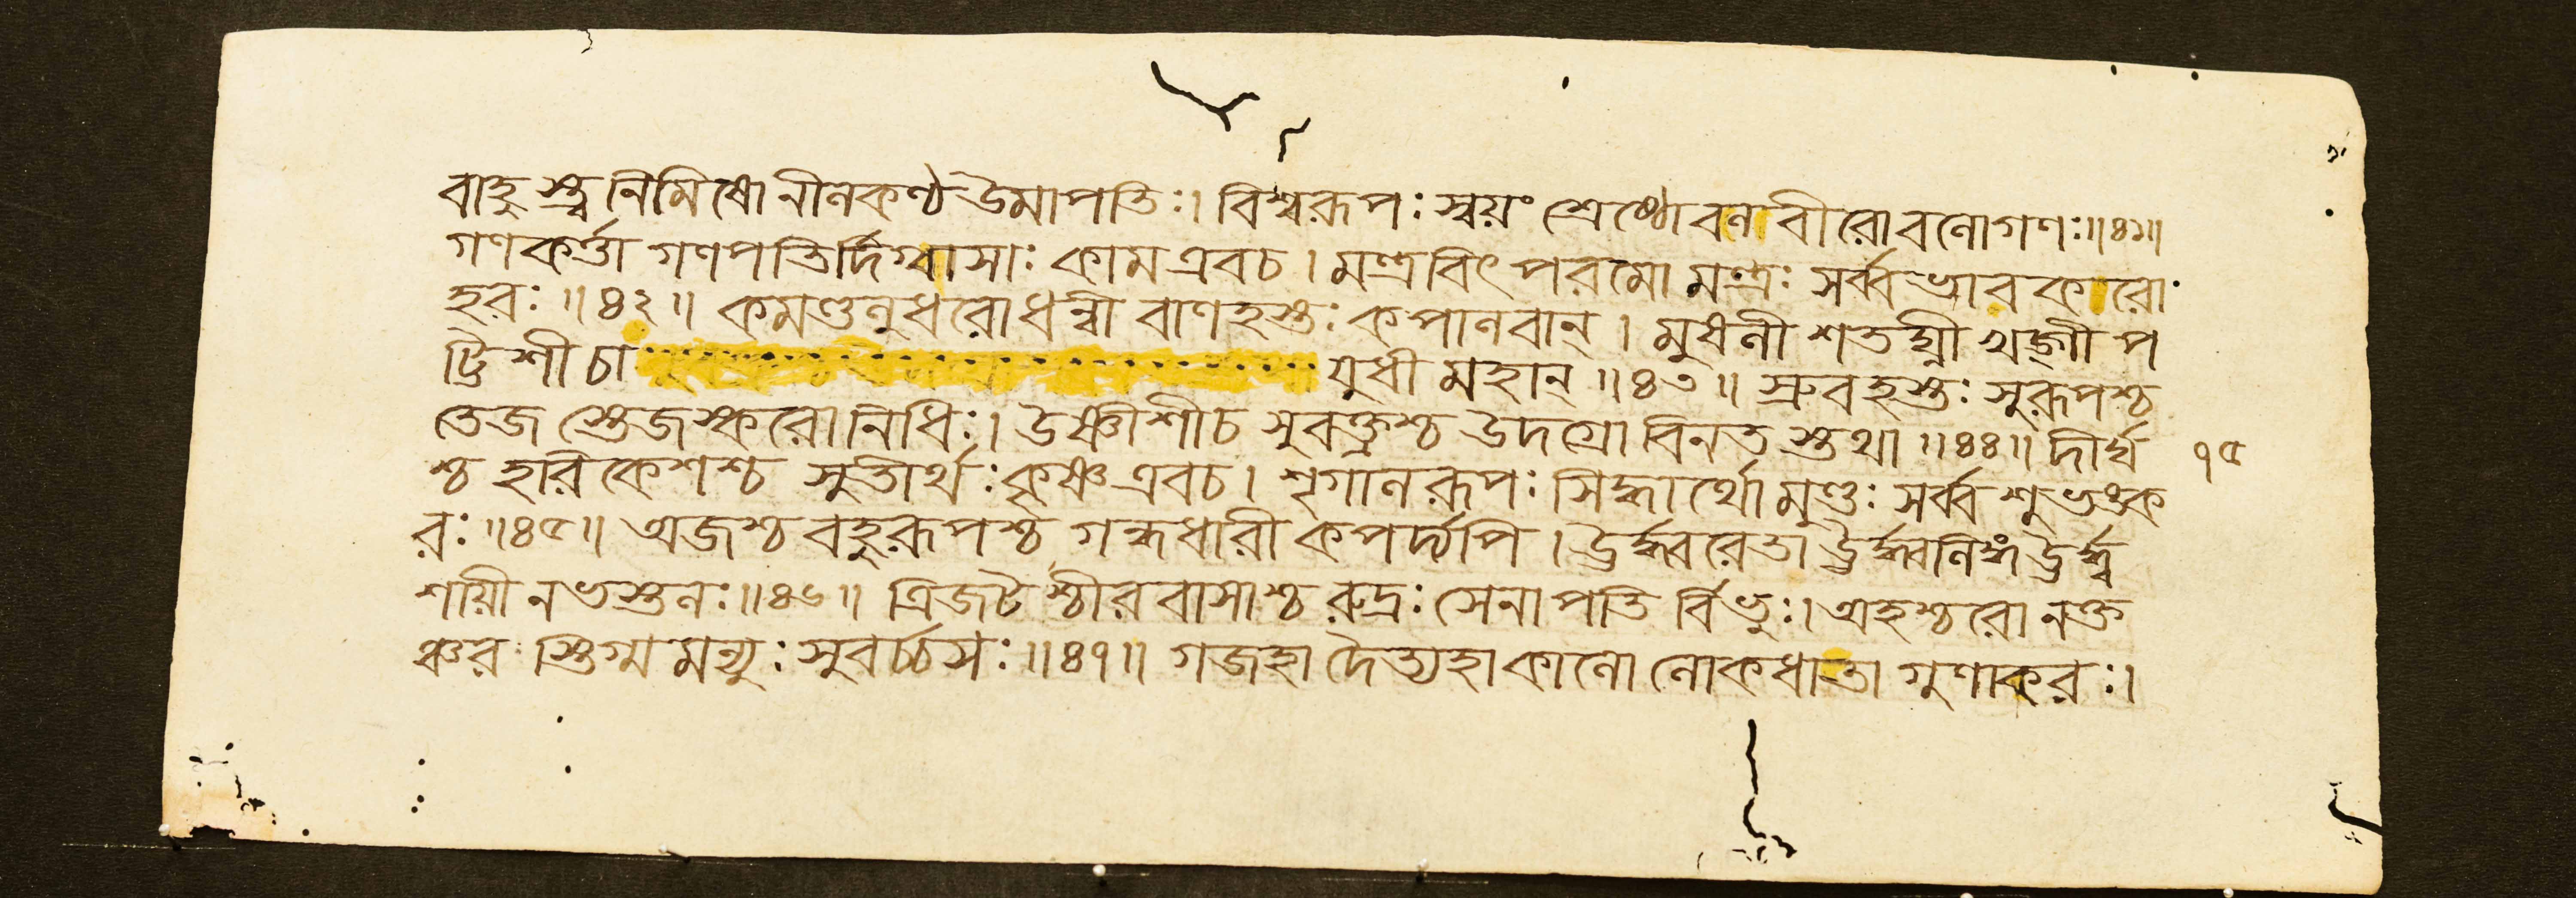 বাহুস্ত্বনিমিষো নীলকণ্ঠ উমাপতিঃ। বিশ্বরূপঃ স্বয়ং শ্রেষ্ঠো বলবীরো বলো গণঃ॥৪১॥
গণকর্ত্তা গণপতির্দিগ্বাসাঃ কাম এবচ। মন্ত্রবিৎ পরমো মন্ত্রঃ সর্ব্বভাবকরো
হরঃ॥৪২॥ কমণ্ডলুধরো ধন্বী বাণহস্তঃ কপালবান্। মুষলী শতঘ্নী খড়্গী প
ট্টিশী চা যুধী মহান্॥৪৩॥ স্রুবহস্তঃ সুরূপশ্চ
তেজস্তেজস্করো নিধিঃ। উষ্ণীশীচ সুবক্ত্রশ্চ উদগ্রো বিনতস্তথা॥৪৪॥ দীর্ঘ ১৫
শ্চ হরিকেশশ্চ সুতীর্থঃ কৃষ্ণ এবচ। শৃগালরূপঃ সিদ্ধার্থো মুণ্ডঃ সর্ব্বশুভঙ্ক
রঃ॥৪৫॥ অজশ্চ বহুরূপশ্চ গন্ধধারী কপর্দ্দ্যপি। ঊর্দ্ধ্বরেতা ঊর্দ্ধ্বলিঙ্গ ঊর্দ্ধ্ব
শায়ী নভস্তলঃ॥৪৬॥ ত্রিজটৈশ্চীরবাসাশ্চ রুদ্রঃ সেনাপতির্বিভুঃ। অহশ্চরো নক্ত
ঞ্চর স্তিগ্মমন্যুঃ সুবর্চ্চসঃ॥৪৭॥ গজহা দৈত্যহা কালো লোকধাতা গুণাকরঃ।